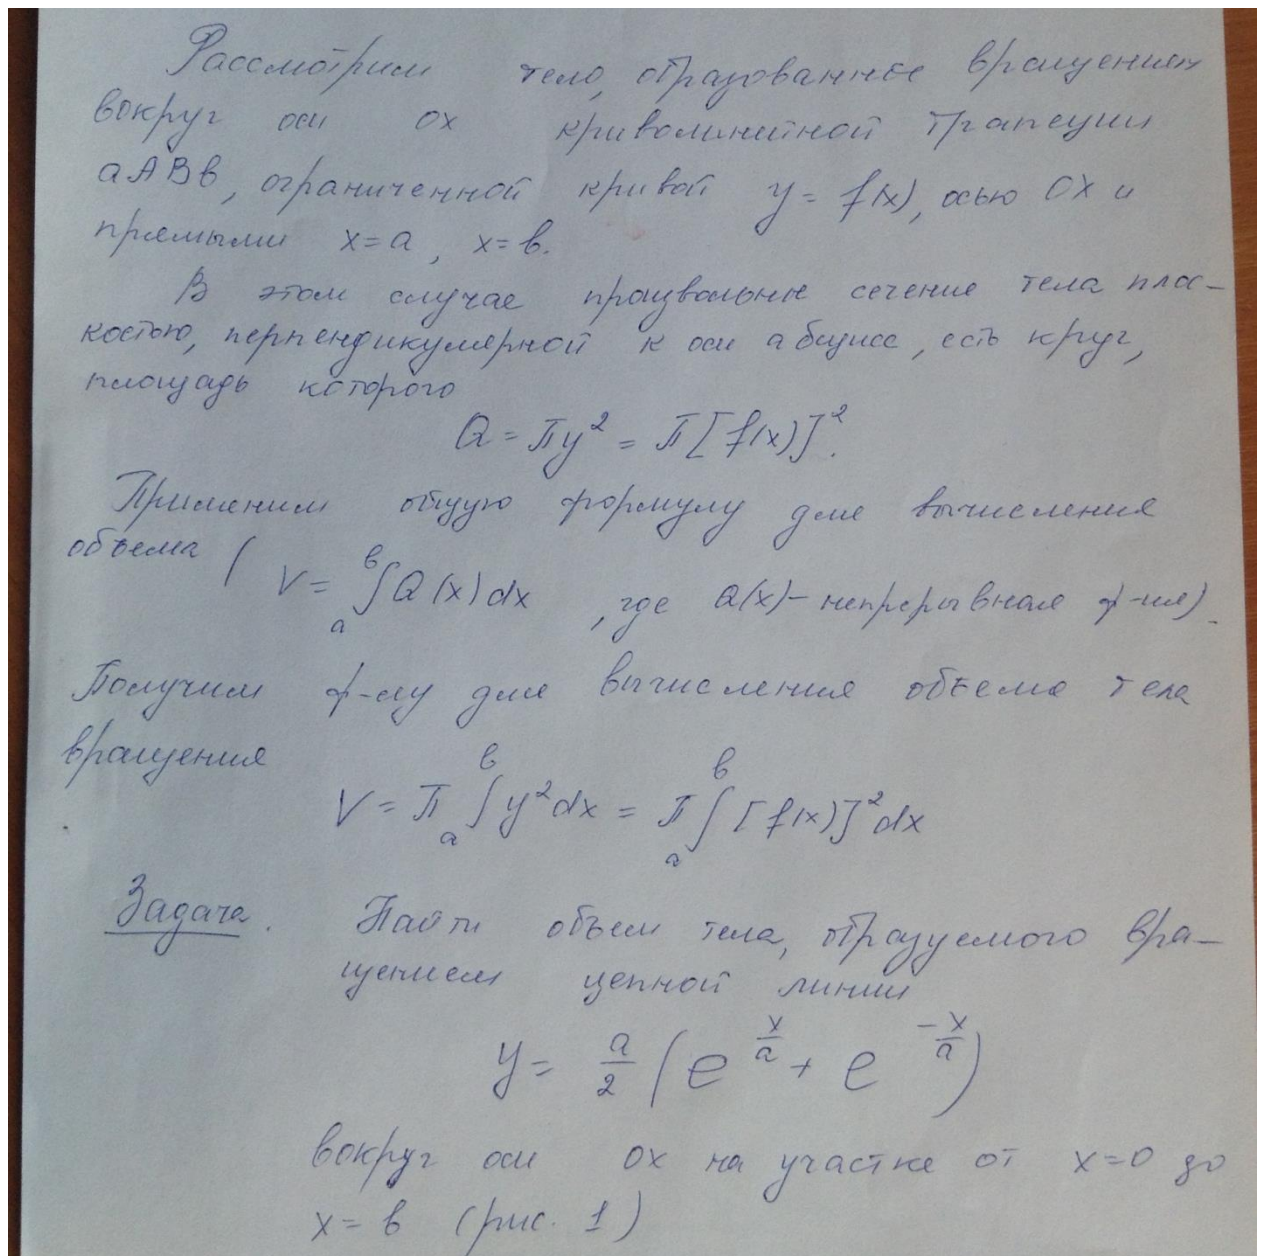 Рассмотрим тело, образованное вращением
вокруг оси ОХ криволинейной трапеции
аАВв, ограниченной кривой y = f(x), осью ОХ и
прямыми x=a, x=в.
В этом случае произвольное сечение тела плос-
костью, перпендикулярной к оси абсцисс, есть круг,
площадь которого
Q = πy² = π[f(x)]².
Применим общую формулу для вычисления
объема ( V = ∫ₐᵇ Q(x)dx, где Q(x) – непрерывная ф-ия).
Получим ф-лу для вычисления объема тела
вращения
V = π ∫ₐᵇ y²dx = π ∫ₐᵇ [f(x)]²dx
Задача. Найти объем тела, образуемого вра-
щением цепной линии
y = a/2 (e^(x/a) + e^(-x/a))
вокруг оси ОХ на участке от x=0 до
x=в (рис. 1)